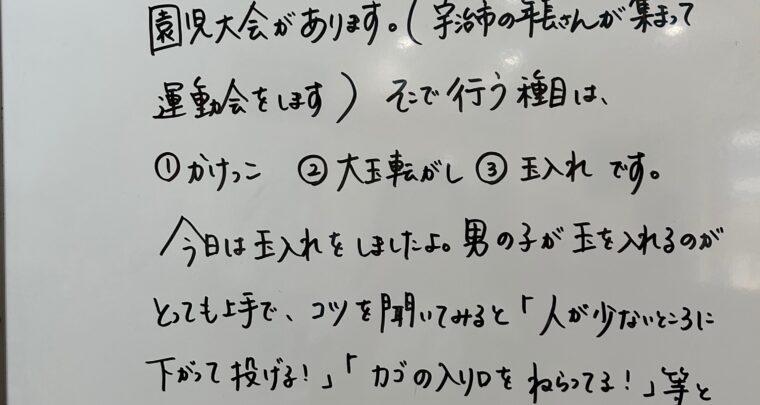 園児大会があります。(宇治市の年長さんが集まって
運動会をします) そこで行う種目は、
①かけっこ ②大玉転がし ③玉入れ です。
今日は玉入れをしましたよ。男の子が玉を入れるのが
とっても上手で、コツを聞いてみると「人が少ないところに
下がって投げる!」「カゴの入り口をねらってる!」等と